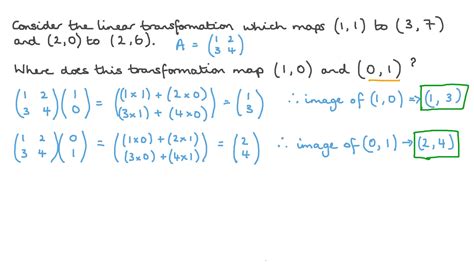 Consider the linear transfomation which maps (1,1) to (3,7)
and (2,0) to (2,6). A = (1 2
3 4)
Where does this transformation map (1,0) and (0,1) ?
(1 2
3 4) (1
0) = ((1×1) + (2×0)
(3×1) + (4×0)) = (1
3) ∴ image of (1,0) → (1,3)
(1 2
3 4) (0
1) = ((1×0) + (2×1)
(3×0) + (4×1)) = (2
4) ∴ image of (0,1) → (2,4)